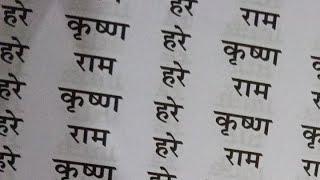 हरे कृष्ण हरे राम
हरे राम हरे कृष्ण
हरे कृष्ण हरे राम
हरे राम हरे कृष्ण
हरे कृष्ण हरे राम